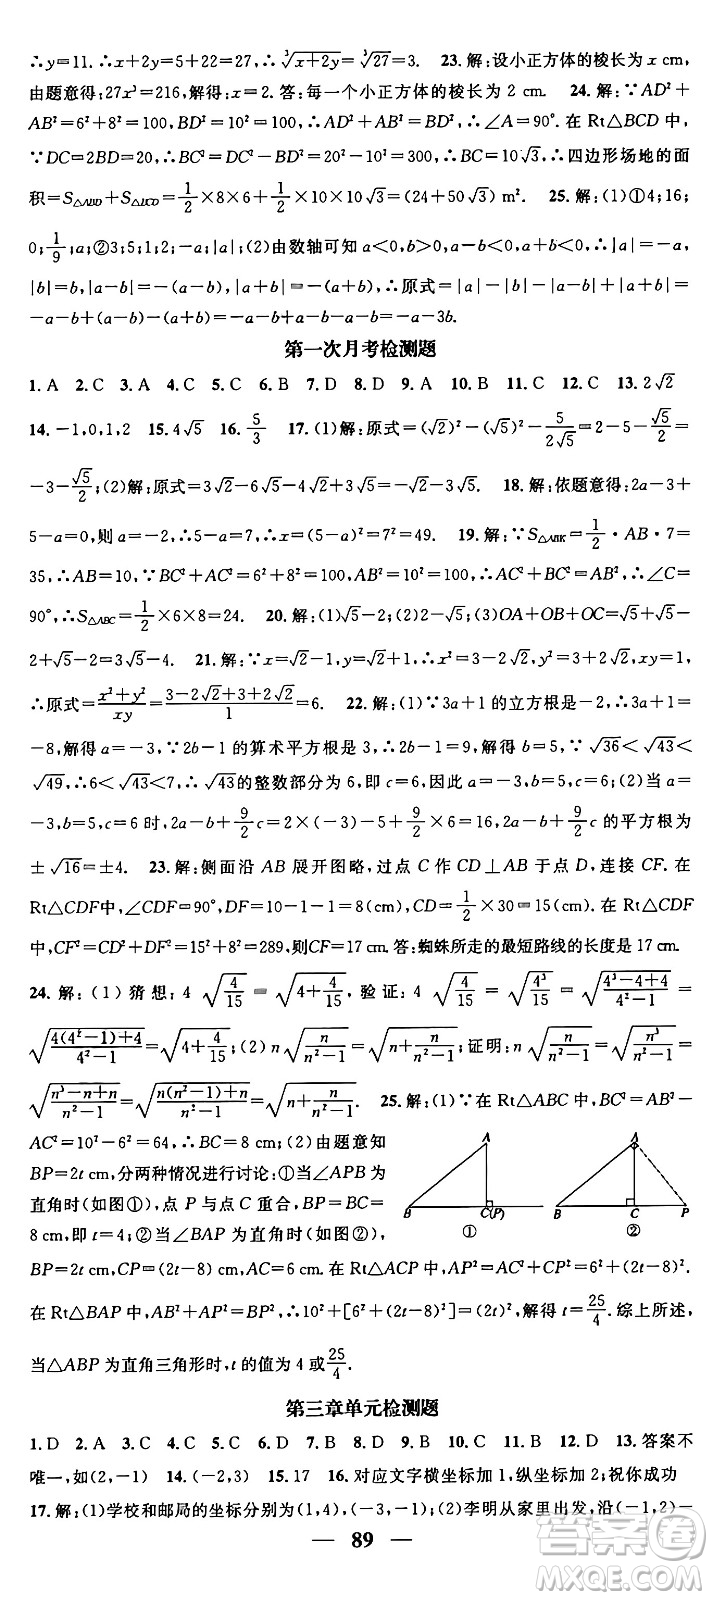 ∴y=11.∴x+2y=5+22=27,∴∛(x+2y)=∛27=3. 23.解:设小正方体的棱长为 x cm,
由题意得:27x³=216,解得:x=2.答:每一个小正方体的棱长为 2 cm. 24.解:∵AD²+
AB²=6²+8²=100,BD²=10²=100,∴AD²+AB²=BD²,∴∠A=90°.在 Rt△BCD 中,
∵DC=2BD=20,∴BC²=DC²-BD²=20²-10²=300,∴BC=10√3,∴四边形场地的面
积=S△ABD+S△BCD=1/2×8×6+1/2×10×10√3=(24+50√3) m². 25.解:(1)①4;16;
0;1/9;a;②3;5;1;2;-a;|a|;(2)由数轴可知 a<0,b>0,a-b<0,a+b>0,∴|a|=-a,
|b|=b,|a-b|=-(a-b),|a+b|=(a+b),∴原式=|a|-|b|-|a-b|-|a+b|=
-a-b+(a-b)-(a+b)=-a-b+a-b-a-b=-a-3b.
第一次月考检测题
1. A 2. C 3. A 4. C 5. C 6. B 7. D 8. D 9. A 10. B 11. C 12. C 13. 2√2
14. -1,0,1,2 15. 4√5 16. 5/3 17. (1)解:原式=(√2)²-(√5)²-5/(2√5)=2-5-√5/2=
-3-√5/2;(2)解:原式=3√2-6√5-4√2+5√5=-√2-√5. 18.解:依题意得:2a-3+
5-a=0,则 a=-2,∴5-a=7,∴x=(5-a)²=7²=49. 19.解:∵S△ABK=1/2·AB·7=
35,∴AB=10,∵BC²+AC²=6²+8²=10²=AB²,∴△ABC 为直角三角形,∴∠C=
90°,∴S△ABC=1/2×6×8=24. 20.解:(1)√5-2;(2)√5;(3)OA+OB+OC=√5+√5-
2+√5-2=3√5-4. 21.解:∵x=√2-1,∴x²=3-2√2,∵y=√2+1,∴y²=3+2√2,
∴原式=(x²+y²)/xy=(3-2√2+3+2√2)/1=6. 22.解:(1)∵3a+1 的立方根是-2,∴3a+1=
-8,解得 a=-3,∵2b-1 的算术平方根是 3,∴2b-1=9,解得 b=5,∵√36<√43<
√49,∴6<√43<7,∴√43的整数部分为 6,即 c=6,因此,a=-3,b=5,c=6;(2)当 a=
-3,b=5,c=6 时,2a-b+9/2c=-6-5+9/2×6=16,∴2a-b+9/2c 的平方根为
±√16=±4. 23.解:侧面沿 AB 展开图略,过点 C 作 CD⊥AB 于点 D,连接 CF.在
Rt△CDF中,∠CDF=90°,DF=10-1-1=8(cm),CD=1/2×30=15(cm),在Rt△CDF
中,CF²=CD²+DF²=15²+8²=289,则CF=17 cm.答:蜘蛛所走的最短路线的长度是 17 cm.
24.解:(1)猜想:4√(4/15)=√(4+4/15),验证:4√(4/15)=√(4³/15)=√((4³-4+4)/(4²-1))=
√((4(4²-1)+4)/(4²-1))=√(4+4/15);(2)n√(n/(n²-1))=√(n+n/(n²-1));证明:n√(n/(n²-1))=√(n³/(n²-1))=
√((n³-n+n)/(n²-1))=√((n(n²-1)+n)/(n²-1))=√(n+n/(n²-1)). 25.解:(1)∵在 Rt△ABC 中,BC²=AB²-
AC²=10²-6²=64,∴BC=8 cm;(2)由题意知
BP=2t cm,分两种情况进行讨论:①当∠APB为
直角时(如图①),点 P 与点 C 重合,BP=BC=
8 cm,即 t=4;②当∠BAP 为直角时(如图②),
A
B
C(P)
①
A
B
C
P
②
BP=2t cm,CP=(2t-8) cm,AC=6 cm.在 Rt△ACP 中,AP²=AC²+CP²=6²+(2t-8)².
在 Rt△BAP 中,AB²+AP²=BP²,∴10²+[6²+(2t-8)²]=(2t)²,解得 t=25/4.综上所述,
当△ABP 为直角三角形时,t 的值为 4 或25/4.
第三章单元检测题
1. D 2. A 3. D 4. D 5. C 6. A 7. D 8. B 9. A 10. C 11. C 12. D 13. 答案不
唯一,如(2,-1) 14. (-2,3) 15. 17 16. 对应文字横坐标加 1,纵坐标加 2;祝你成功
17.解:(1)学校和邮局的坐标分别为(1,4),(-3,-1);(2)李明从家里出发,沿(-1,2)-
— 89 —
答案圈
MXQE.COM